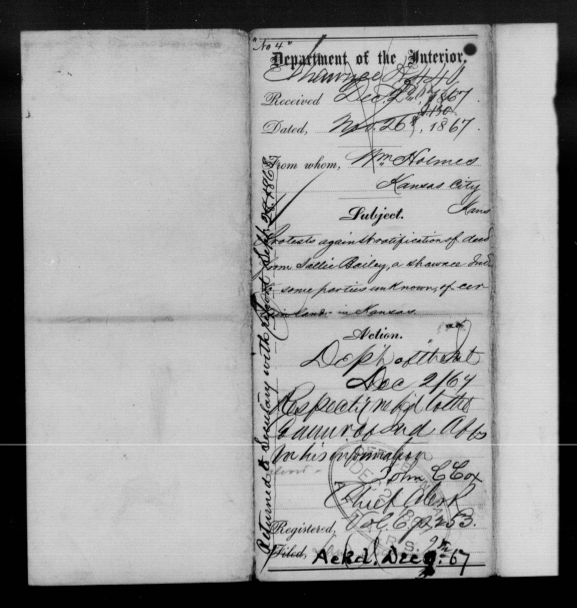 "No 4"
Department of the Interior.
Shawnee
Received Dec 2d, 1867.
Dated, Nov. 26th, 1867.
From whom, Wm Holmes
Kansas City
Kans
Subject.
Protests against ratification of deed
from Sallie Bailey, a Shawnee Ind
some parties unknown, of cer
tain lands in Kansas.
Action.
Dep't of the Int
Dec 2/67
Respect. refd to the
Commr of Ind Affs
for his information
John C Cox
Chief Clerk
Registered, Vol E, p. 253.
Filed, Ackd. Dec 9th 67
Returned to Secretary with report Sept 28, 1868